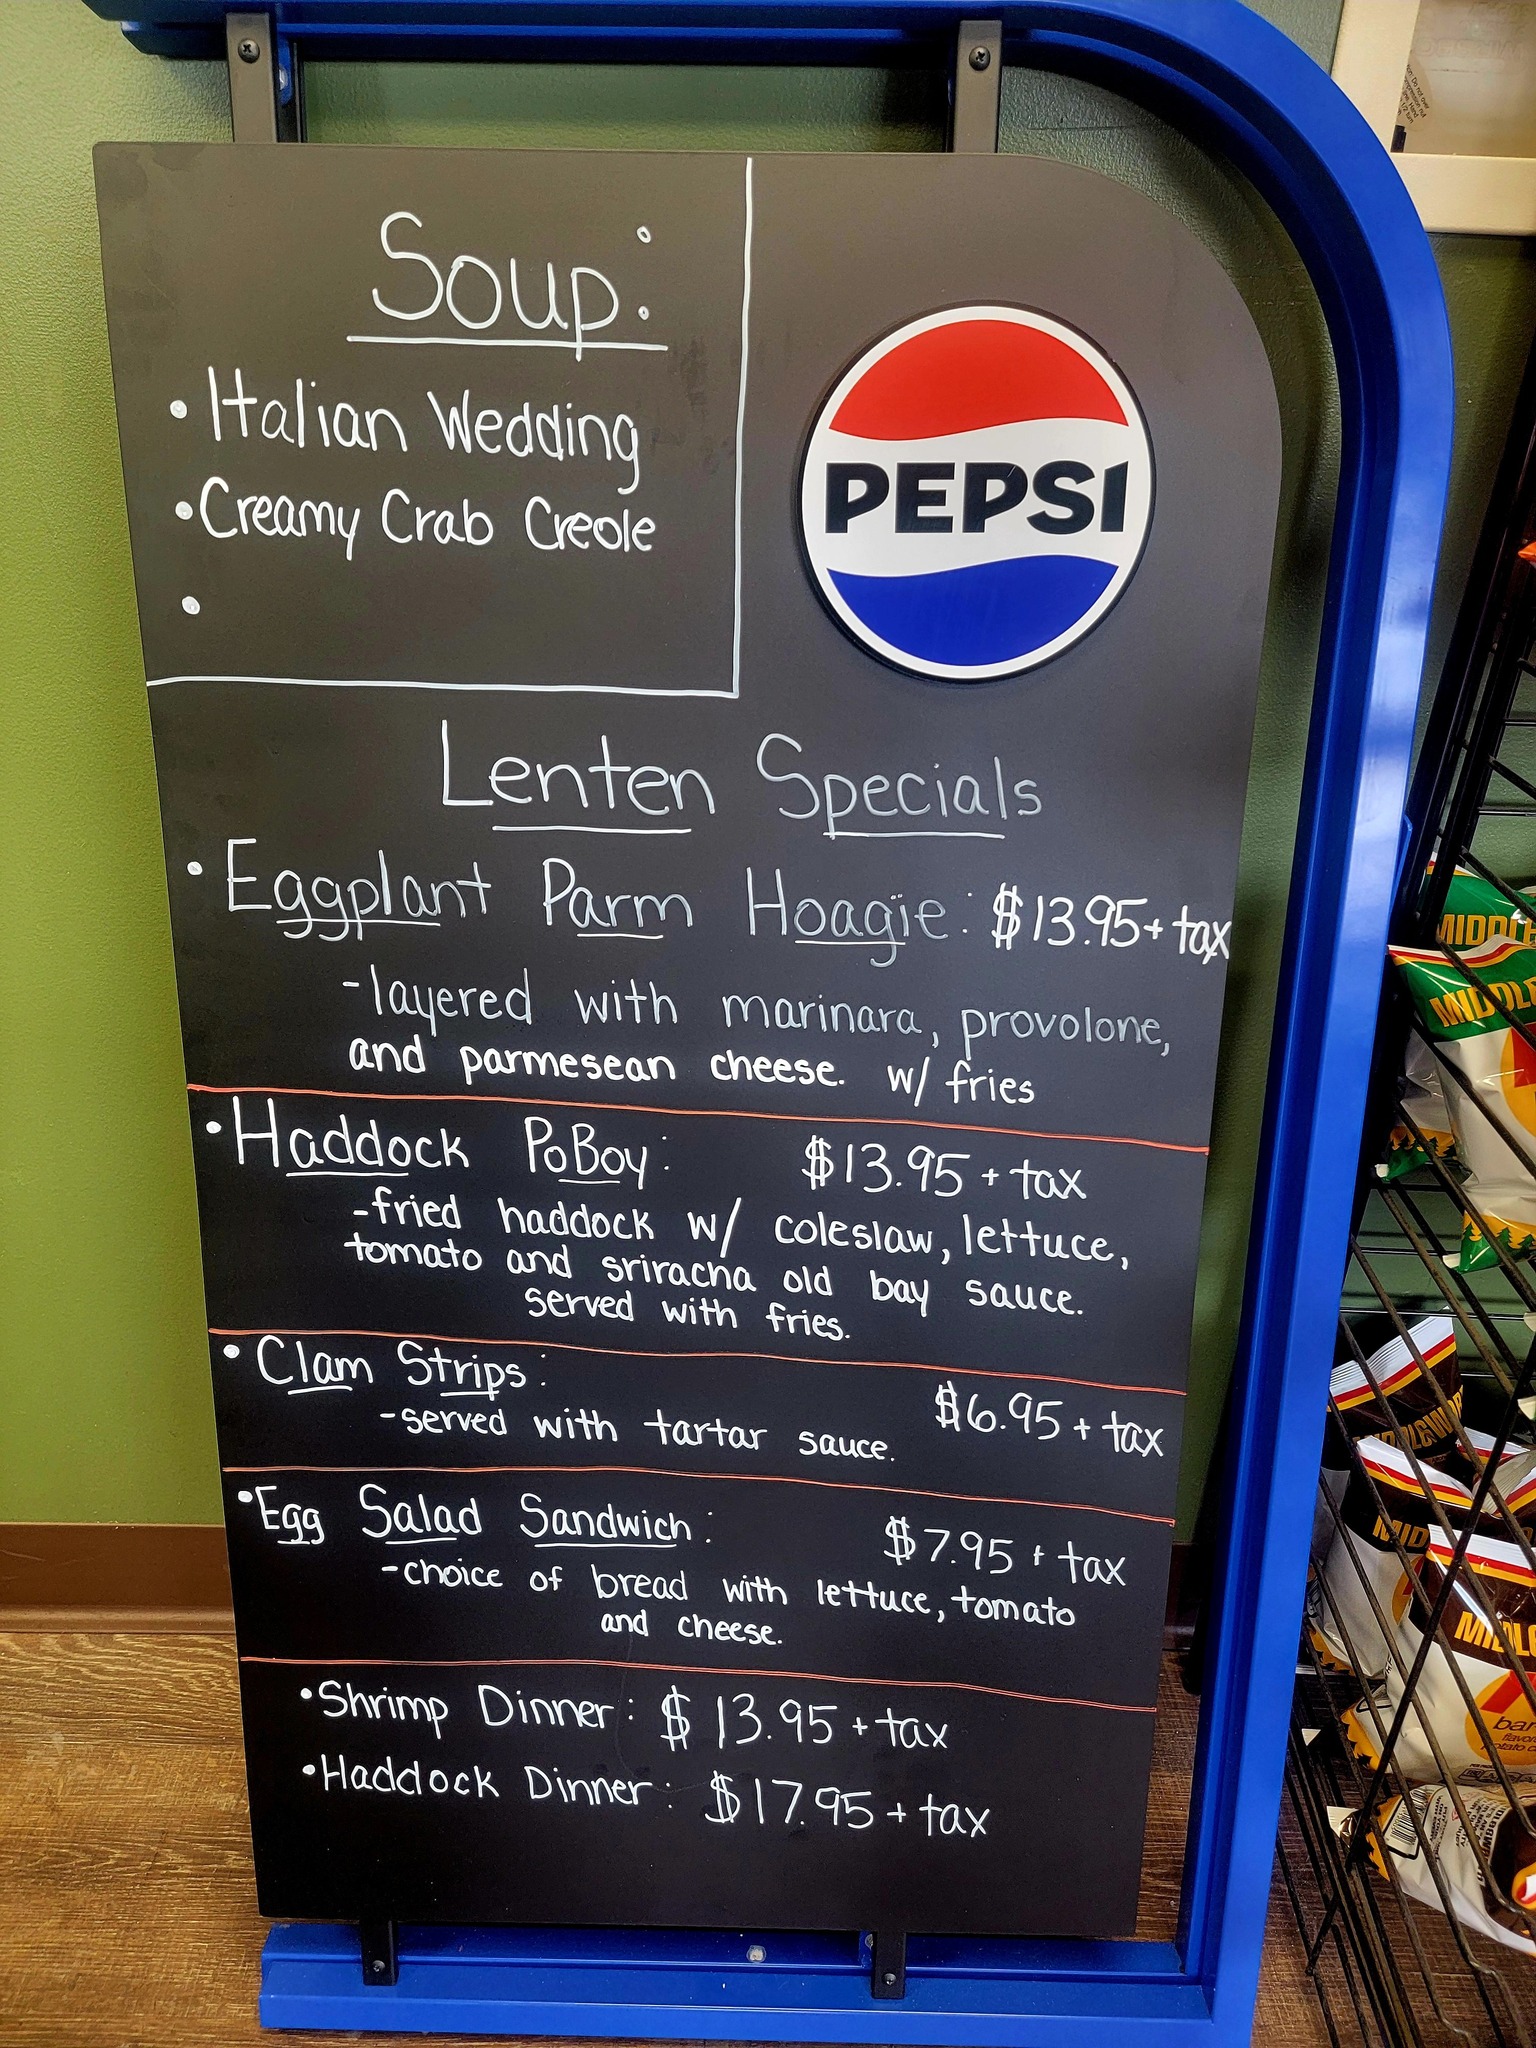 Soup:
• Italian Wedding
• Creamy Crab Creole
•
PEPSI
Lenten Specials
• Eggplant Parm Hoagie: $13.95 + tax
- layered with marinara, provolone,
and parmesean cheese. w/ fries
• Haddock PoBoy: $13.95 + tax
- fried haddock w/ coleslaw, lettuce,
tomato and sriracha old bay sauce.
served with fries.
• Clam Strips: $6.95 + tax
- served with tartar sauce.
• Egg Salad Sandwich: $7.95 + tax
- choice of bread with lettuce, tomato
and cheese.
• Shrimp Dinner: $13.95 + tax
• Haddock Dinner: $17.95 + tax